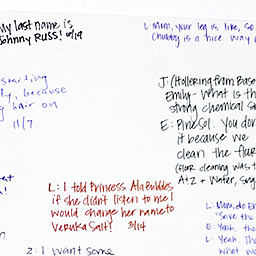 My last name is
Johnny Russ! 10/19
L: Mum, your leg is like, so
Chubby is a nice way
starting
because
hair on
11/7
J: (Hollering from Base
Emily - What is th
strong chemical s
E: PineSol. You don
it because we
clean the flo
(Floor cleaning was t
A+Z + Water, Sug
L: I told Princess AlaBubbles
if she didn't listen to me I
would change her name to
Veruka Salt! 3/14
L: Mum, do
"Save the
E: Yeah, the
L: Yeah. Th
what wo
2: I want some